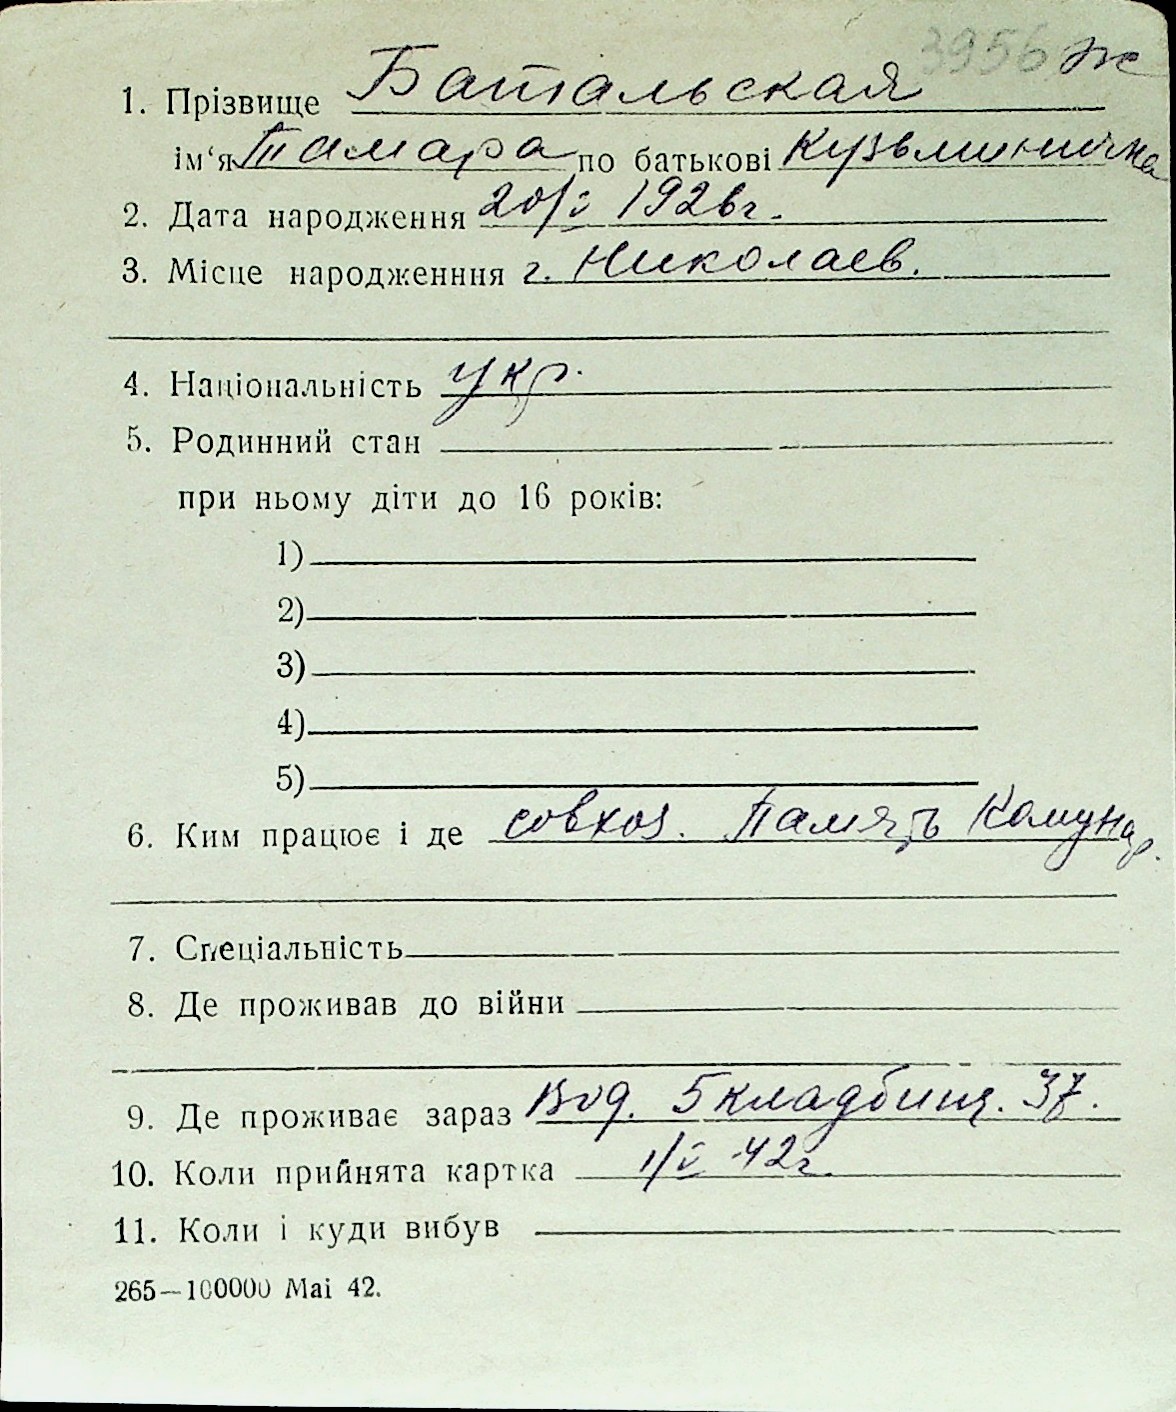 3956 ж
1. Прізвище Батальская
ім‘я Тамара по батькові Кузьминична
2. Дата народження 20/V 1926г.
3. Місце народженння г. Николаев.
4. Національність укр.
5. Родинний стан
при ньому діти до 16 років:
1)
2)
3)
4)
5)
6. Ким працює і де совхоз. Память Комунар.
7. Спеціальність
8. Де проживав до війни
9. Де проживає зараз Вод. 5 кладбищ. 37.
10. Коли прийнята картка 1/V 42г.
11. Коли і куди вибув
265—100000 Маі 42.